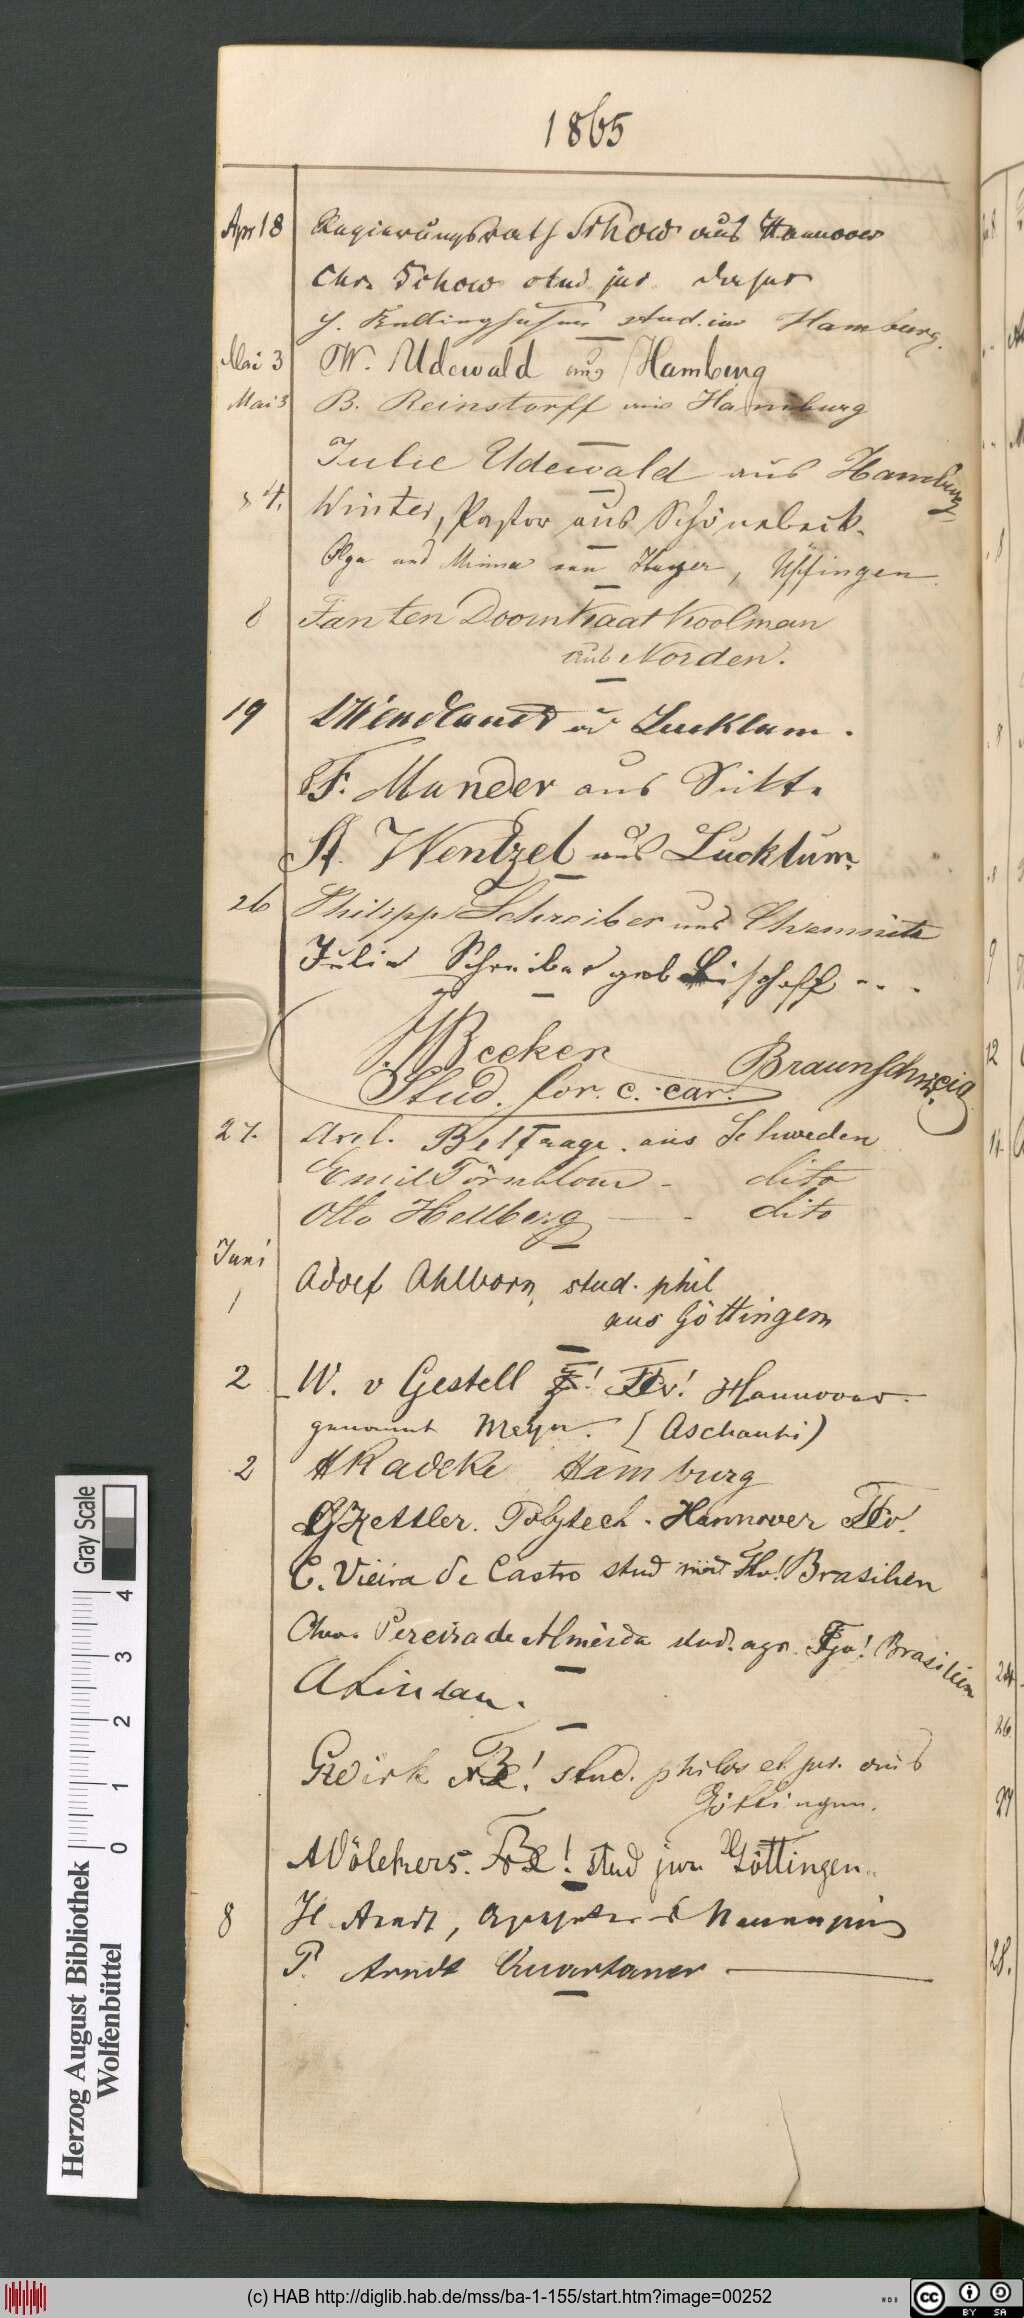 1865
Apr 18 Regierungsrath Schow aus Hannover
Chr. Schow stud. jur. daher
stud. in Hamburg.
Mai 3 W. Udewald aus Hamburg
Mai 3 B. Reinstorff aus Hamburg
Julie Udewald aus Hamburg
" 4. Winter, Pastor aus Schönebeck.
Olga und Minna von, Üffingen.
8 Jan ten Doornkaat Koolman
aus Norden.
19 Wendlandt a/ Lucklum.
F. Munder aus Sickte
A. Wentzel aus Lucklum.
26 Philipp Schreiber aus Chemnitz
Julie Schreiber geb Bischoff - - -
Becker Braunschweig.
Stud. for. c. car.
27. Axel. Belfrage. aus Schweden
Emil Törnblom - dito
Otto Hellberg - dito
Juni
1
Adolf Ahlborn, stud. phil
aus Göttingen
2 W. v Gestell Hannover.
genannt Meyer. (Aschanti)
2 H Radeke Hamburg
G Kettler. Polytech. Hannover
C. Vieira de Castro stud med Brasilien
Pereira de Almeida stud. agr. Brasilien
A Lindau.
stud. philos et jur. aus
Göttingen.
A Völckers. stud jur Göttingen.
8 H. Arndt,
P. Arndt Quartaner
Gray Scale
4 3 2 1 0
Herzog August Bibliothek
Wolfenbüttel
24
26
27
28.
(c) HAB http://diglib.hab.de/mss/ba-1-155/start.htm?image=00252
WDB
cc BY SA